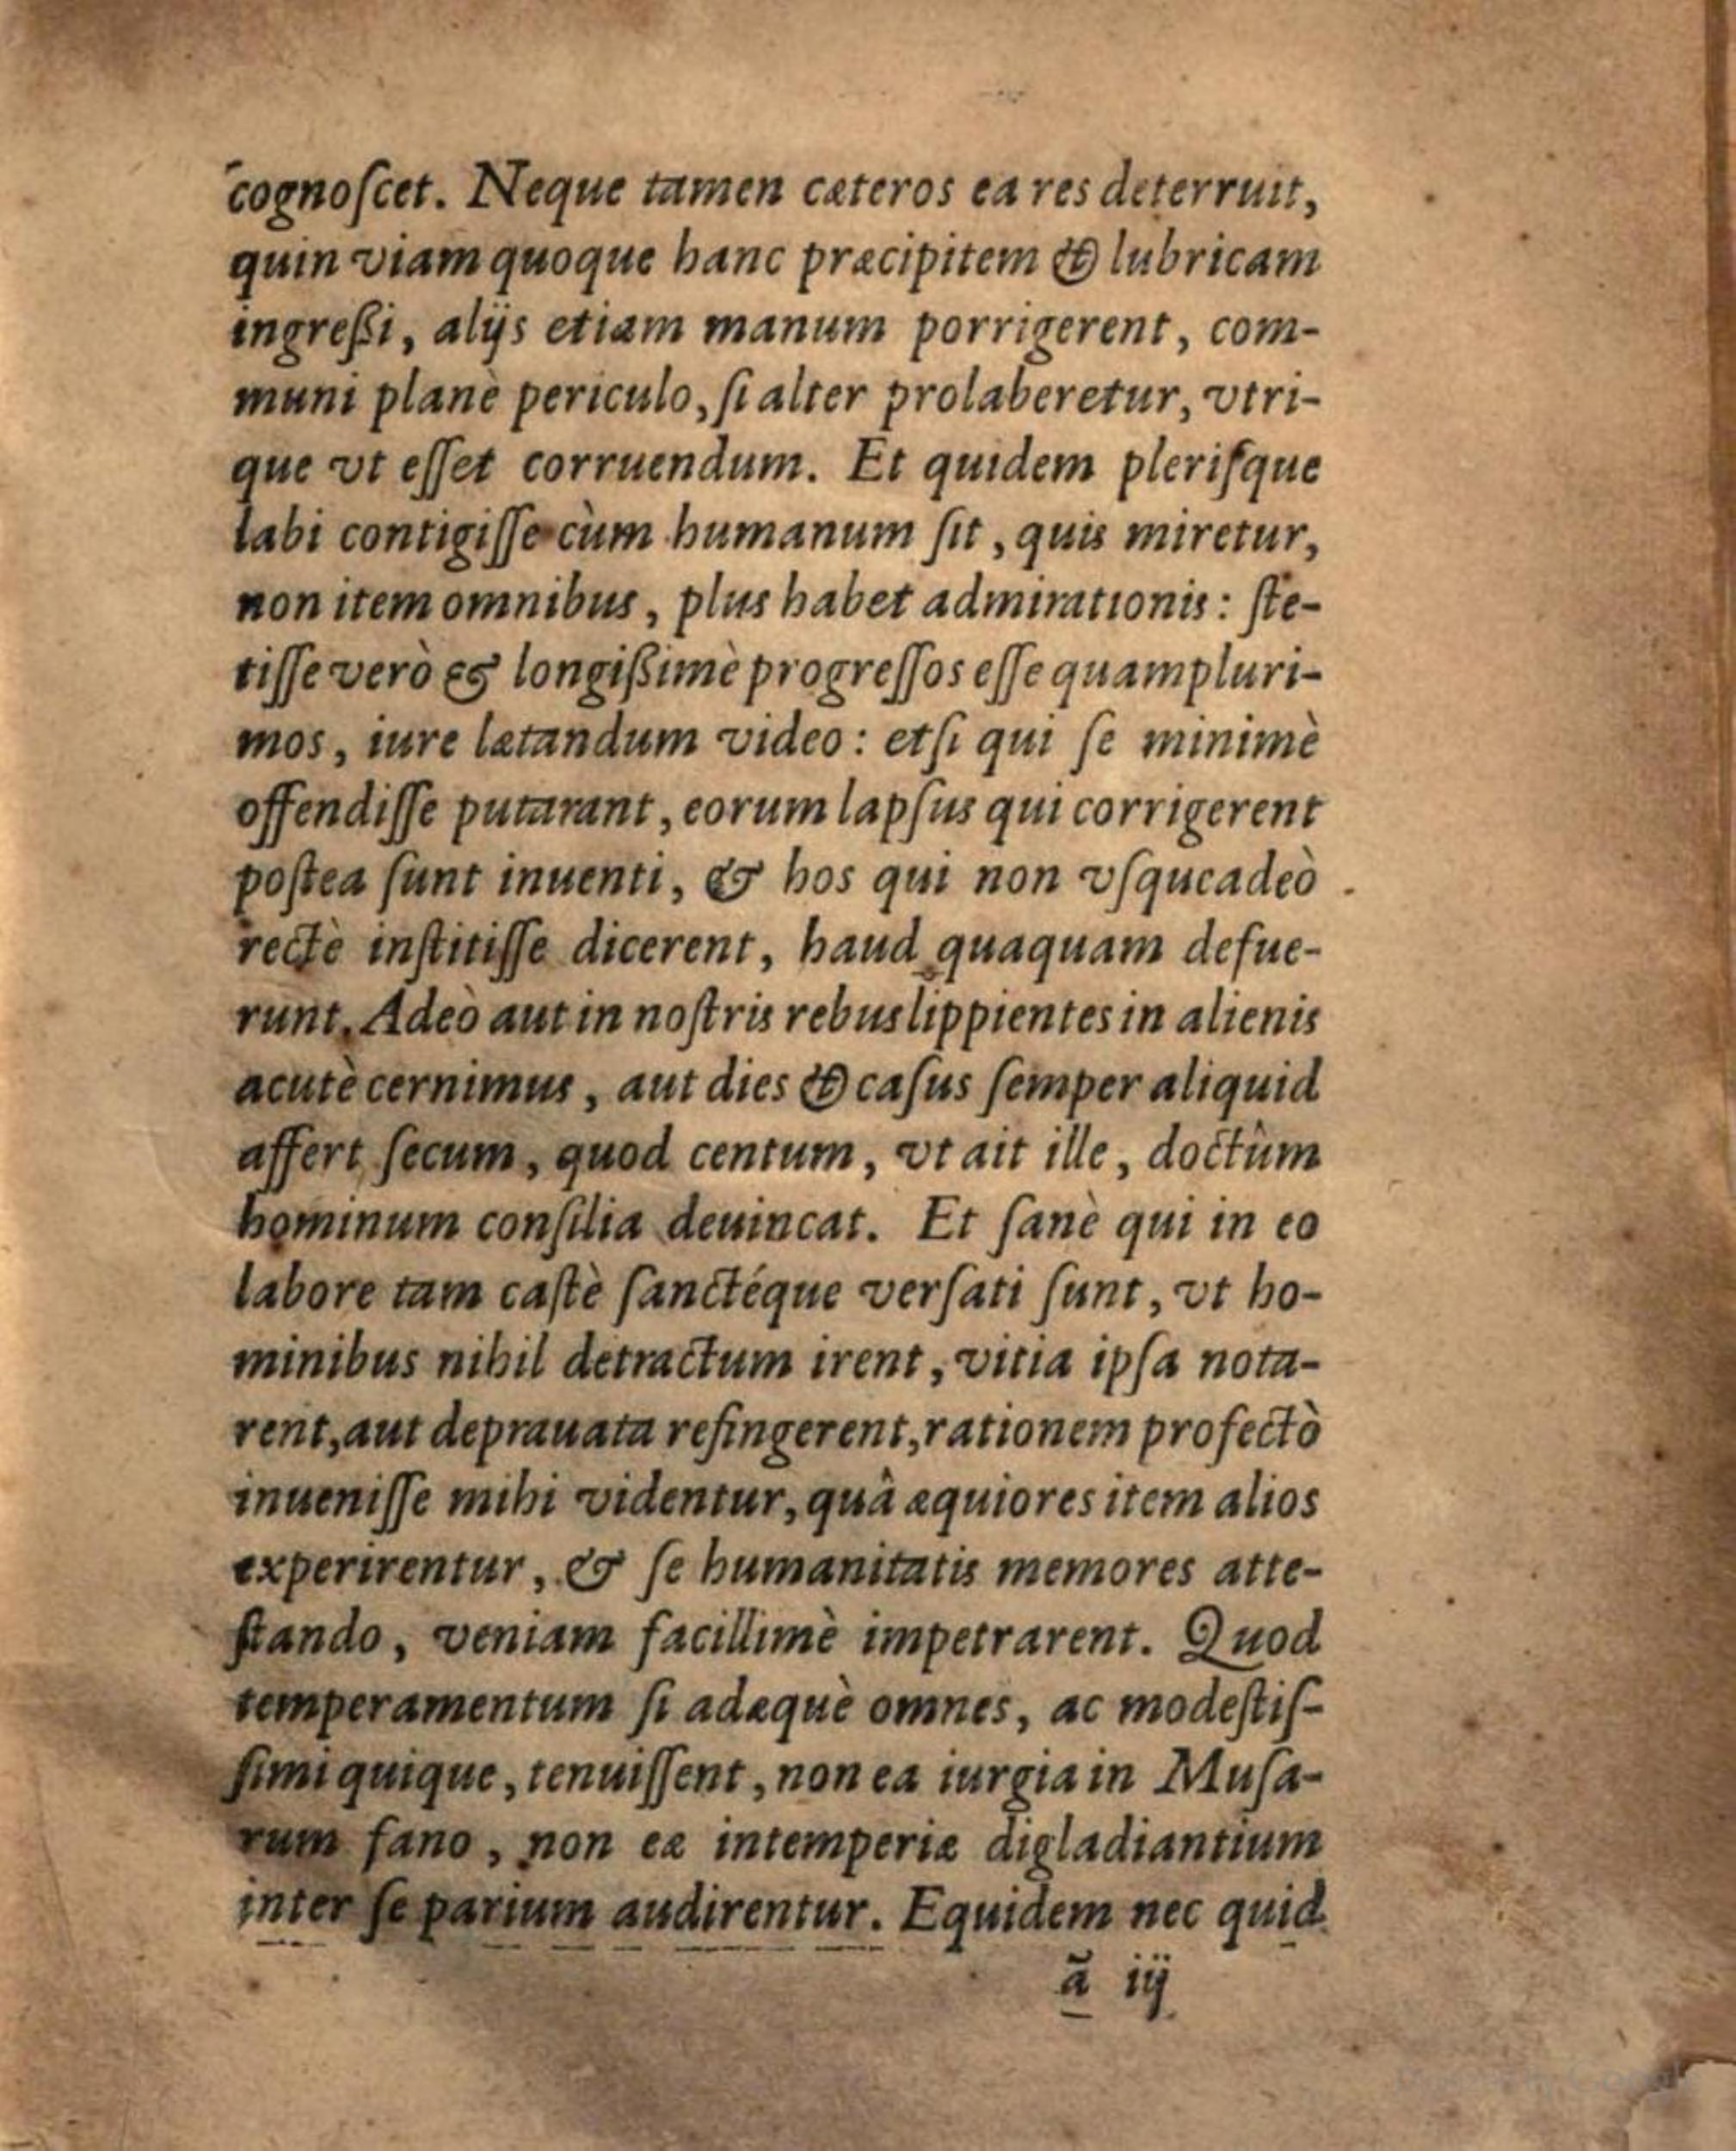 cognoſcet. Neque tamen cæteros ea res deterruit,
quin viam quoque hanc præcipitem & lubricam
ingreßi, alijs etiam manum porrigerent, com-
muni planè periculo, ſi alter prolaberetur, vtri-
que vt eſſet corruendum. Et quidem pleriſque
labi contigiſſe cùm humanum ſit, quis miretur,
non item omnibus, plus habet admirationis: ſte-
tiſſe verò & longißimè progreſſos eſſe quampluri-
mos, iure lætandum video: etſi qui ſe minimè
offendiſſe putarant, eorum lapſus qui corrigerent
poſtea ſunt inuenti, & hos qui non vſqueadeò
rectè inſtitiſſe dicerent, haud quaquam defue-
runt. Adeò aut in noſtris rebus lippientes in alienis
acutè cernimus, aut dies & caſus ſemper aliquid
affert ſecum, quod centum, vt ait ille, doctûm
hominum conſilia deuincat. Et ſanè qui in eo
labore tam caſtè ſanctéque verſati ſunt, vt ho-
minibus nihil detractum irent, vitia ipſa nota-
rent, aut deprauata refingerent, rationem profectò
inueniſſe mihi videntur, quâ æquiores item alios
experirentur, & ſe humanitatis memores atte-
ſtando, veniam facillimè impetrarent. Quod
temperamentum ſi adæquè omnes, ac modeſtiſ-
ſimi quique, tenuiſſent, non ea iurgia in Muſa-
rum fano, non eæ intemperiæ digladiantium
inter ſe parium audirentur. Equidem nec quid
ã iij